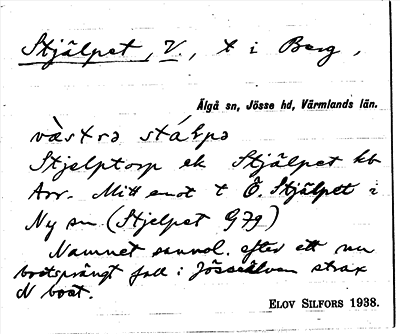 Stjälpet, V., t i Berg,
Älgå sn, Jösse hd, Värmlands län.
vàstrə stálpə
Stjelptorp ek Stjälpet kb
Arr. Mitt emot t Ö. Stjälpet i
Ny sn. (Stjelpet G79)
Namnet sannol. efter ett nu
bortsprängt fall i Jösseälven strax
N bost.
ELOV SILFORS 1938.